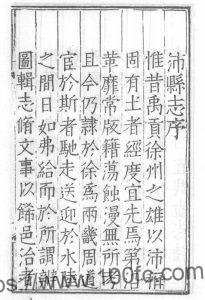 沛縣志序
惟昔禹貢徐州之雄以沛稱
周有土者經度宜先焉第沿
革靡常版籍蕩蝕漫無所考
且今仍隸於徐為兩畿周道
宦於斯者馳走送迎於水陸
之間日如弗給而於所謂輿
圖輯志脩文事以餙邑治者
.com